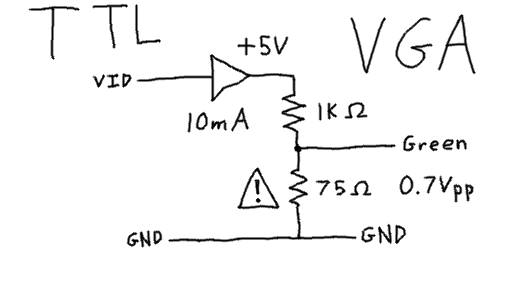 TTL
VGA
+5V
VID
10mA
1KΩ
Green
!
75Ω
0.7Vpp
GND
GND